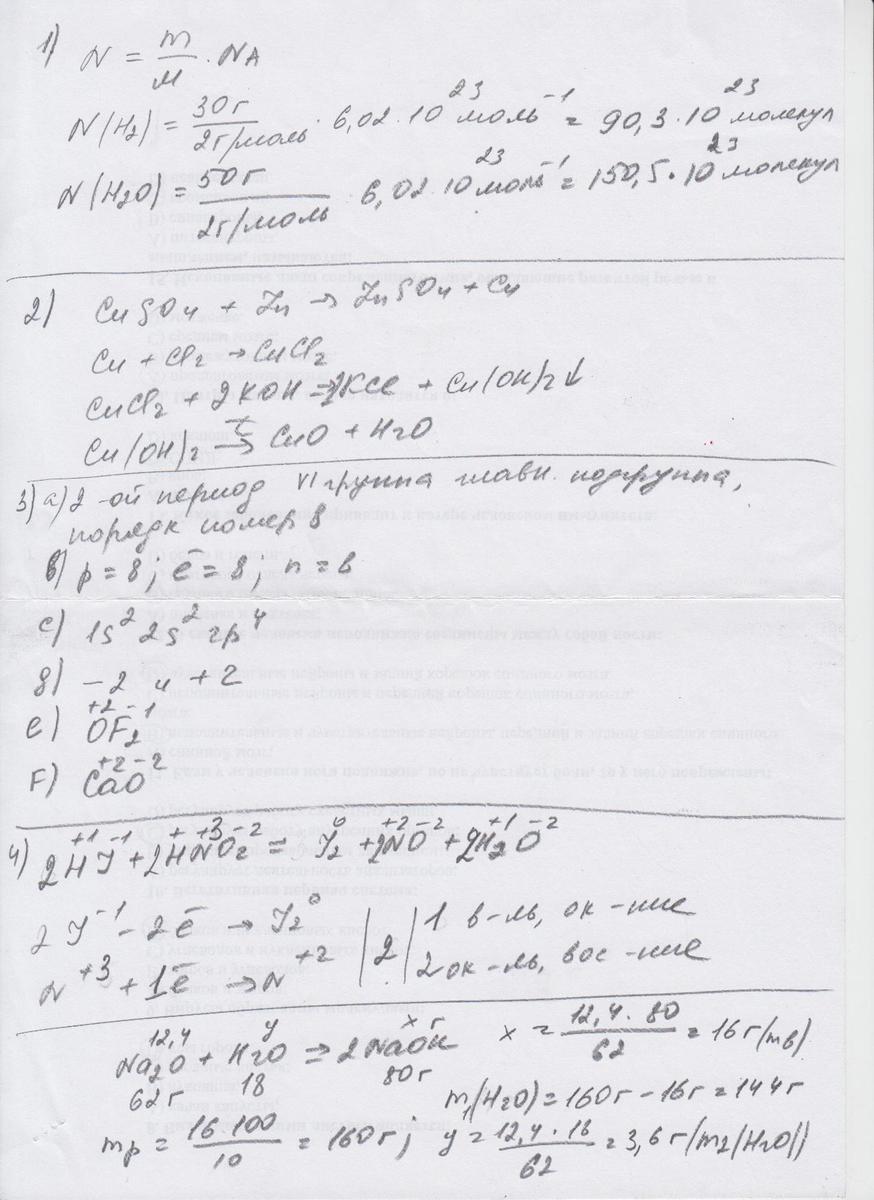 1) N = m/M · NA
N(H2) = 30г/2г/моль · 6,02 · 10^23 моль^-1 = 90,3 · 10^23 молекул
N(H2O) = 50г/2г/моль · 6,02 · 10^23 моль^-1 = 150,5 · 10^23 молекул
2) CuSO4 + Zn → ZnSO4 + Cu
Cu + Cl2 → CuCl2
CuCl2 + 2KOH → 2KCl + Cu(OH)2↓
Cu(OH)2 →t CuO + H2O
3) a) 2-ой период VI группа главн. подгруппа,
порядк номер 8
b) p = 8; ē = 8; n = 8
c) 1s^2 2s^2 2p^4
g) -2 и +2
e) O^+2F2^-1
F) Ca^+2O^-2
4) 2H^+1J^-1 + 2H^+N^+3O2^-2 = J2^0 + 2N^+2O^-2 + 2H2^+1O^-2
2J^-1 - 2ē → J2^0 | 2 | 1 в-ль, ок-ние
N^+3 + 1ē → N^+2 | 2 ок-ль, вос-ние
12,4 y x г
Na2O + H2O => 2NaOH x = 12,4 · 80/62 = 16г (mв)
62г 18 80г m1(H2O) = 160г - 16г = 144г
mр = 16·100/10 = 160г; y = 12,4 · 18/62 = 3,6г (m2(H2O))